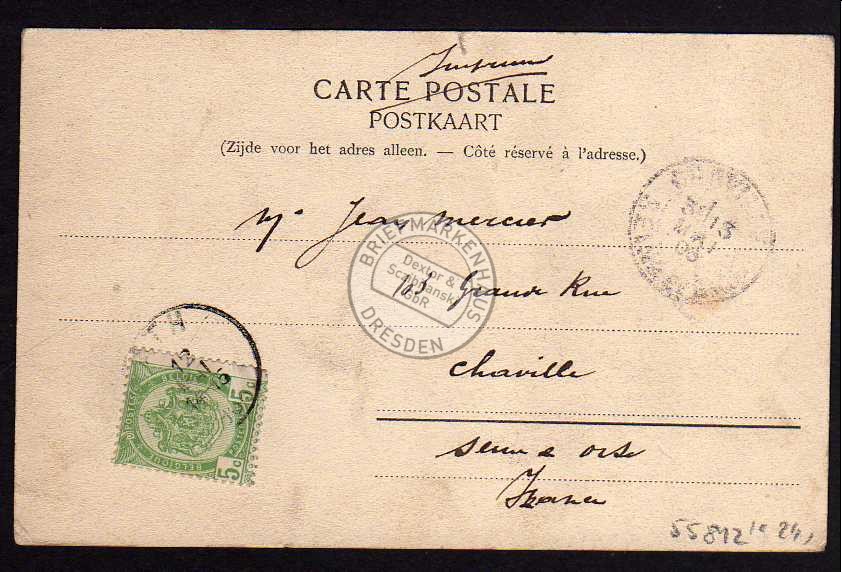 Imprimé
CARTE POSTALE
POSTKAART
(Zijde voor het adres alleen. — Côté réservé à l'adresse.)
Mr Jean Mercier
103 Grande Rue
Chaville
Seine & Oise
France
BRIEFMARKENHAUS
Dexter &
GbR
DRESDEN
5c
BELGIQUE
5c
55812